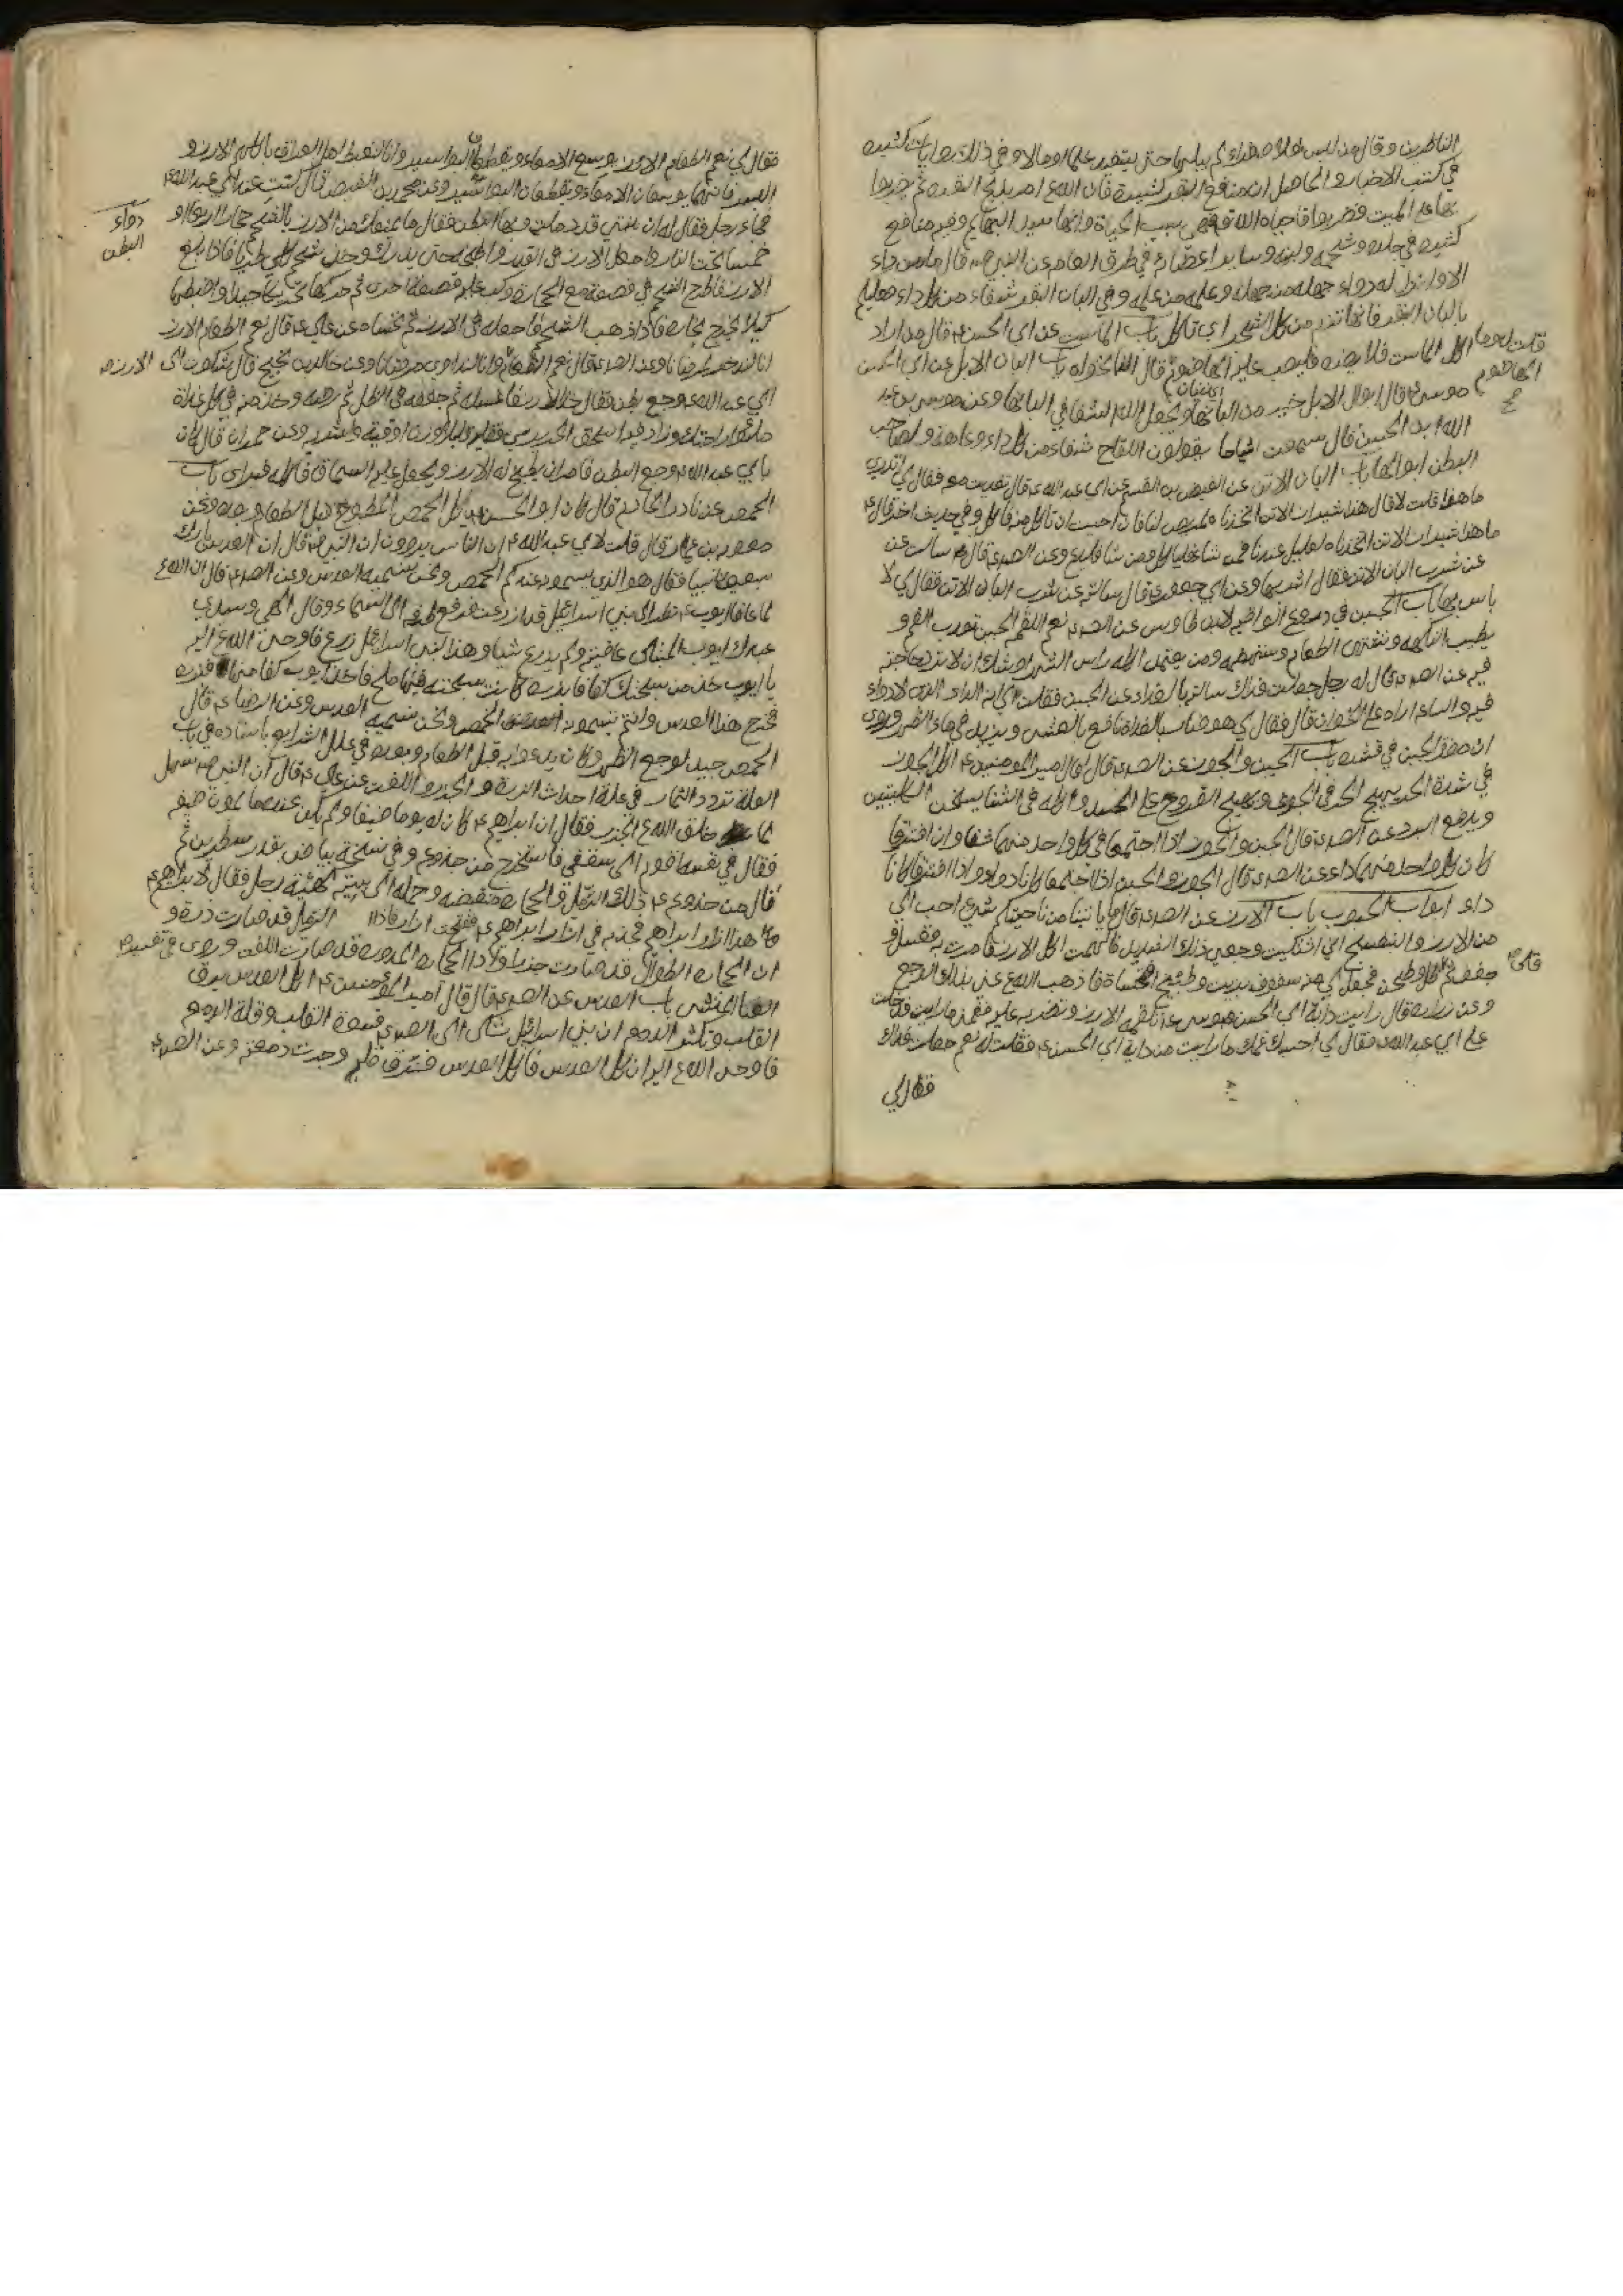 الناظرين وقال من لبس نعلا صفراء لم يبلها حتى يستفيد علما او مالا وفي ذلك روايات كثيرة
في كتب الاخبار والحاصل ان منافع البقر كثيرة فان الله امر بذبح البقرة ثم ضربوا
بها على الميت فضربوا فاحياه الله فهي سبب الحياة وانها سيد البهائم وفيه منافع
كثيرة في جلده وشحمه ولبنه وسائر اعضائه في طرق العامة عن النبي ص قال ما من داء
الا وانزل له دواء جهله من جهله وعلمه من علمه وفي البان البقر شفاء من كل داء فعليكم
بالبان البقر فانها تندر من كل الشجر اي تاكل باب الماست عن ابي الحسن ع قال من اراد
اكل الماست فلا يضره فليصب عليه الهاضوم قال النانخواه باب البان الابل عن ابي الحسن
قلت له وما
الهاضوم
موسى ع قال ابوال الابل خير من البانها ويجعل الله الشفا في البانها وعن موسى بن عبد
الله ابن الحسين قال سمعت اشياخنا يقولون اللقاح شفاء من كل داء وعاهة ولصاحب
البطن ابوالها باب البان الاتن عن العيص بن القسم عن ابي عبد الله ع قال تغديت معه فقال لي اتدري
ما هذا قلت لا قال هذا شيراز الاتن اتخذناه لمريض لنا فان احببت ان تاكل منه فكل وفي حديث اخر قال ع
ما هذا شيراز الاتن اتخذناه لعليل عندنا فمن شا فلياكل ومن شا فليدع وعن الصادق ع قال سالت عن
عن شرب البان الاتن فقال اشربها وعن ابي جعفر ع قال سالته عن شرب البان الاتن فقال لي لا
باس بها باب الجبن في دروع الواقيه لابن طاوس عن الصادق ع نعم اللقمة الجبن تعذب الفم و
يطيب النكهة وتشهي الطعام وتهضمه ومن يعتمد اكله راس الشهر اوشك ان لا ترد حاجته
فيه عن الصادق ع قال له رجل جعلت فداك سالتك بالغداة عن الجبن فقلت لي انه الداء الذي لا دواء
فيه والساعة اراه على الخوان قال فقال لي هو ضار بالغداة نافع بالعشي ويزيد في ماء الظهر وروى
ان مضرة الجبن في قشره باب الجبن والجوز عن الصادق ع قال قال امير المؤمنين ع اكل الجوز
في شدة الحر يهيج الحر في الجوف ويهيج القروح على الجسد واكله في الشتا يسخن الكليتين
ويدفع البرد عن الصادق ع قال الجبن والجوز اذا اجتمعا في كل واحد منهما شفا وان افترقا
كان كل واحد منهما داء عن الصادق ع قال الجوز والجبن اذا اجتمعا كانا دواء واذا افترقا كانا
داء ابواب الحبوب باب الارز عن الصادق ع قال ما ياتينا من ناحيتكم شيء احب الي
من الارز والبنفسج اني اشتكيت وجعي ذلك الشديد فالهمت اكل الارز فامرت به فغسل و
جفف ثم قلي وطحن فجعل لي منه سفوف بزيت وطبيخ اتحساه فاذهب الله عني بذلك الوجع
وعن زرارة قال رايت داية ابي الحسن موسى ع تلقمه الارز وتضربه عليه فغمني ما رايت فدخلت
على ابي عبد الله ع فقال لي احسبك غمك ما رايت من داية ابي الحسن ع فقلت له نعم جعلت فداك
فقال لي
فقال لي نعم الطعام الارز يوسع الامعاء ويقطع البواسير وانا لنغبط اهل العراق باكلهم الارز و
البسر فانهما يوسعان الامعاء ويقطعان البواسير وعن محمد بن الفيض قال كنت عند ابي عبد الله ع
دواء
البطن
فجاء رجل فقال له ان ابنتي قد ذبلت وبها البطن فقال ما يمنعك من الارز بالشحم خذ حجارا اربعا او
خمسا تحت النار واجعل الارز في القدر واطبخه حتى يدرك وخذ شحم كلى طريا فاذا بلغ
الارز فاطرح الشحم في قصعة مع الحجارة وكب عليه قصعة اخرى ثم حركها تحريكا جيدا واضبطها
كيلا يخرج بخاره فاذا ذهب الشحم فاجعله في الارز ثم تحساه عن علي ع قال نعم الطعام الارز
انا لندخره لمرضانا وعن الصادق ع قال نعم الطعام وانا لنداوي مرضانا وعن خالد بن نجيح قال شكوت الى
ابي عبد الله ع وجع بطني فقال خذ الارز فاغسله ثم جففه في الظل ثم رضه وخذ منه في كل غداة
ملء راحتك وزاد فيه اسحق الجريري تقليه قليلا وزن اوقية واشربه وعن حمران قال كان
بابي عبد الله ع وجع البطن فامر ان يطبخ له الارز ويجعل عليه السماق فاكله فبرا باب
الحمص عن نادر الخادم قال كان ابو الحسن ع ياكل الحمص المطبوخ قبل الطعام وبعده وعن
معوية بن عمار قال قلت لابي عبد الله ع ان الناس يروون ان النبي ص قال ان العدس بارك
سبعون نبيا فقال هو الذي يسمونه عندكم الحمص ونحن نسميه العدس وعن الصادق ع قال ان الله
لما عافا ايوب ع نظر الى بني اسرائيل قد ازدرعت فرفع طرفه الى السماء وقال الهي وسيدي
عبدك ايوب المبتلى عافيته ولم يزدرع شيا وهذا لبني اسرائيل زرع فاوحى الله اليه
يا ايوب خذ من سبحتك كفا فابذره وكانت سبحته فيها ملح فاخذ ايوب كفا منها فبذره
فخرج هذا العدس وانتم تسمونه الحمص ونحن نسميه العدس وعن الرضا ع قال
الحمص جيد لوجع الظهر وكان يدعو به قبل الطعام وبعده في علل الشرايع باسناده في باب
العلة تدود الثمار في علة احداث الذرة والجزر واللفت عن علي ع قال ان النبي ص سئل
مما خلق الله الجزر فقال ان ابراهيم ع كان له يوما ضيفا ولم يكن عنده ما يمون ضيفه
فقال في نفسه اقوم الى سقفي فاستخرج من جذوعه وفي نسخة بياض بقدر سطرين ثم
قال من جذوعه ذلك الرمل والحجارة فقبضه وحمله الى بيته كهيئة رجل فقال لابراهيم
ما هذا ازار ابراهيم فجذبه في ازار ابراهيم ع ففتحت ازاره فاذا الرمل قد صارت ذرة و
ان الحجارة الطوال قد صارت جزرا واذا الحجارة المدورة قد صارت اللفت وروي في تفسير
باب العدس عن الصادق ع قال قال امير المؤمنين ع اكل العدس يرق
القلب ويكثر الدموع ان بني اسرائيل شكى الى قسوة القلب وقلة الدموع
فاوحى الله اليه ان كل العدس فاكل العدس فرق قلبه وجرت دمعته وعن الصادق ع